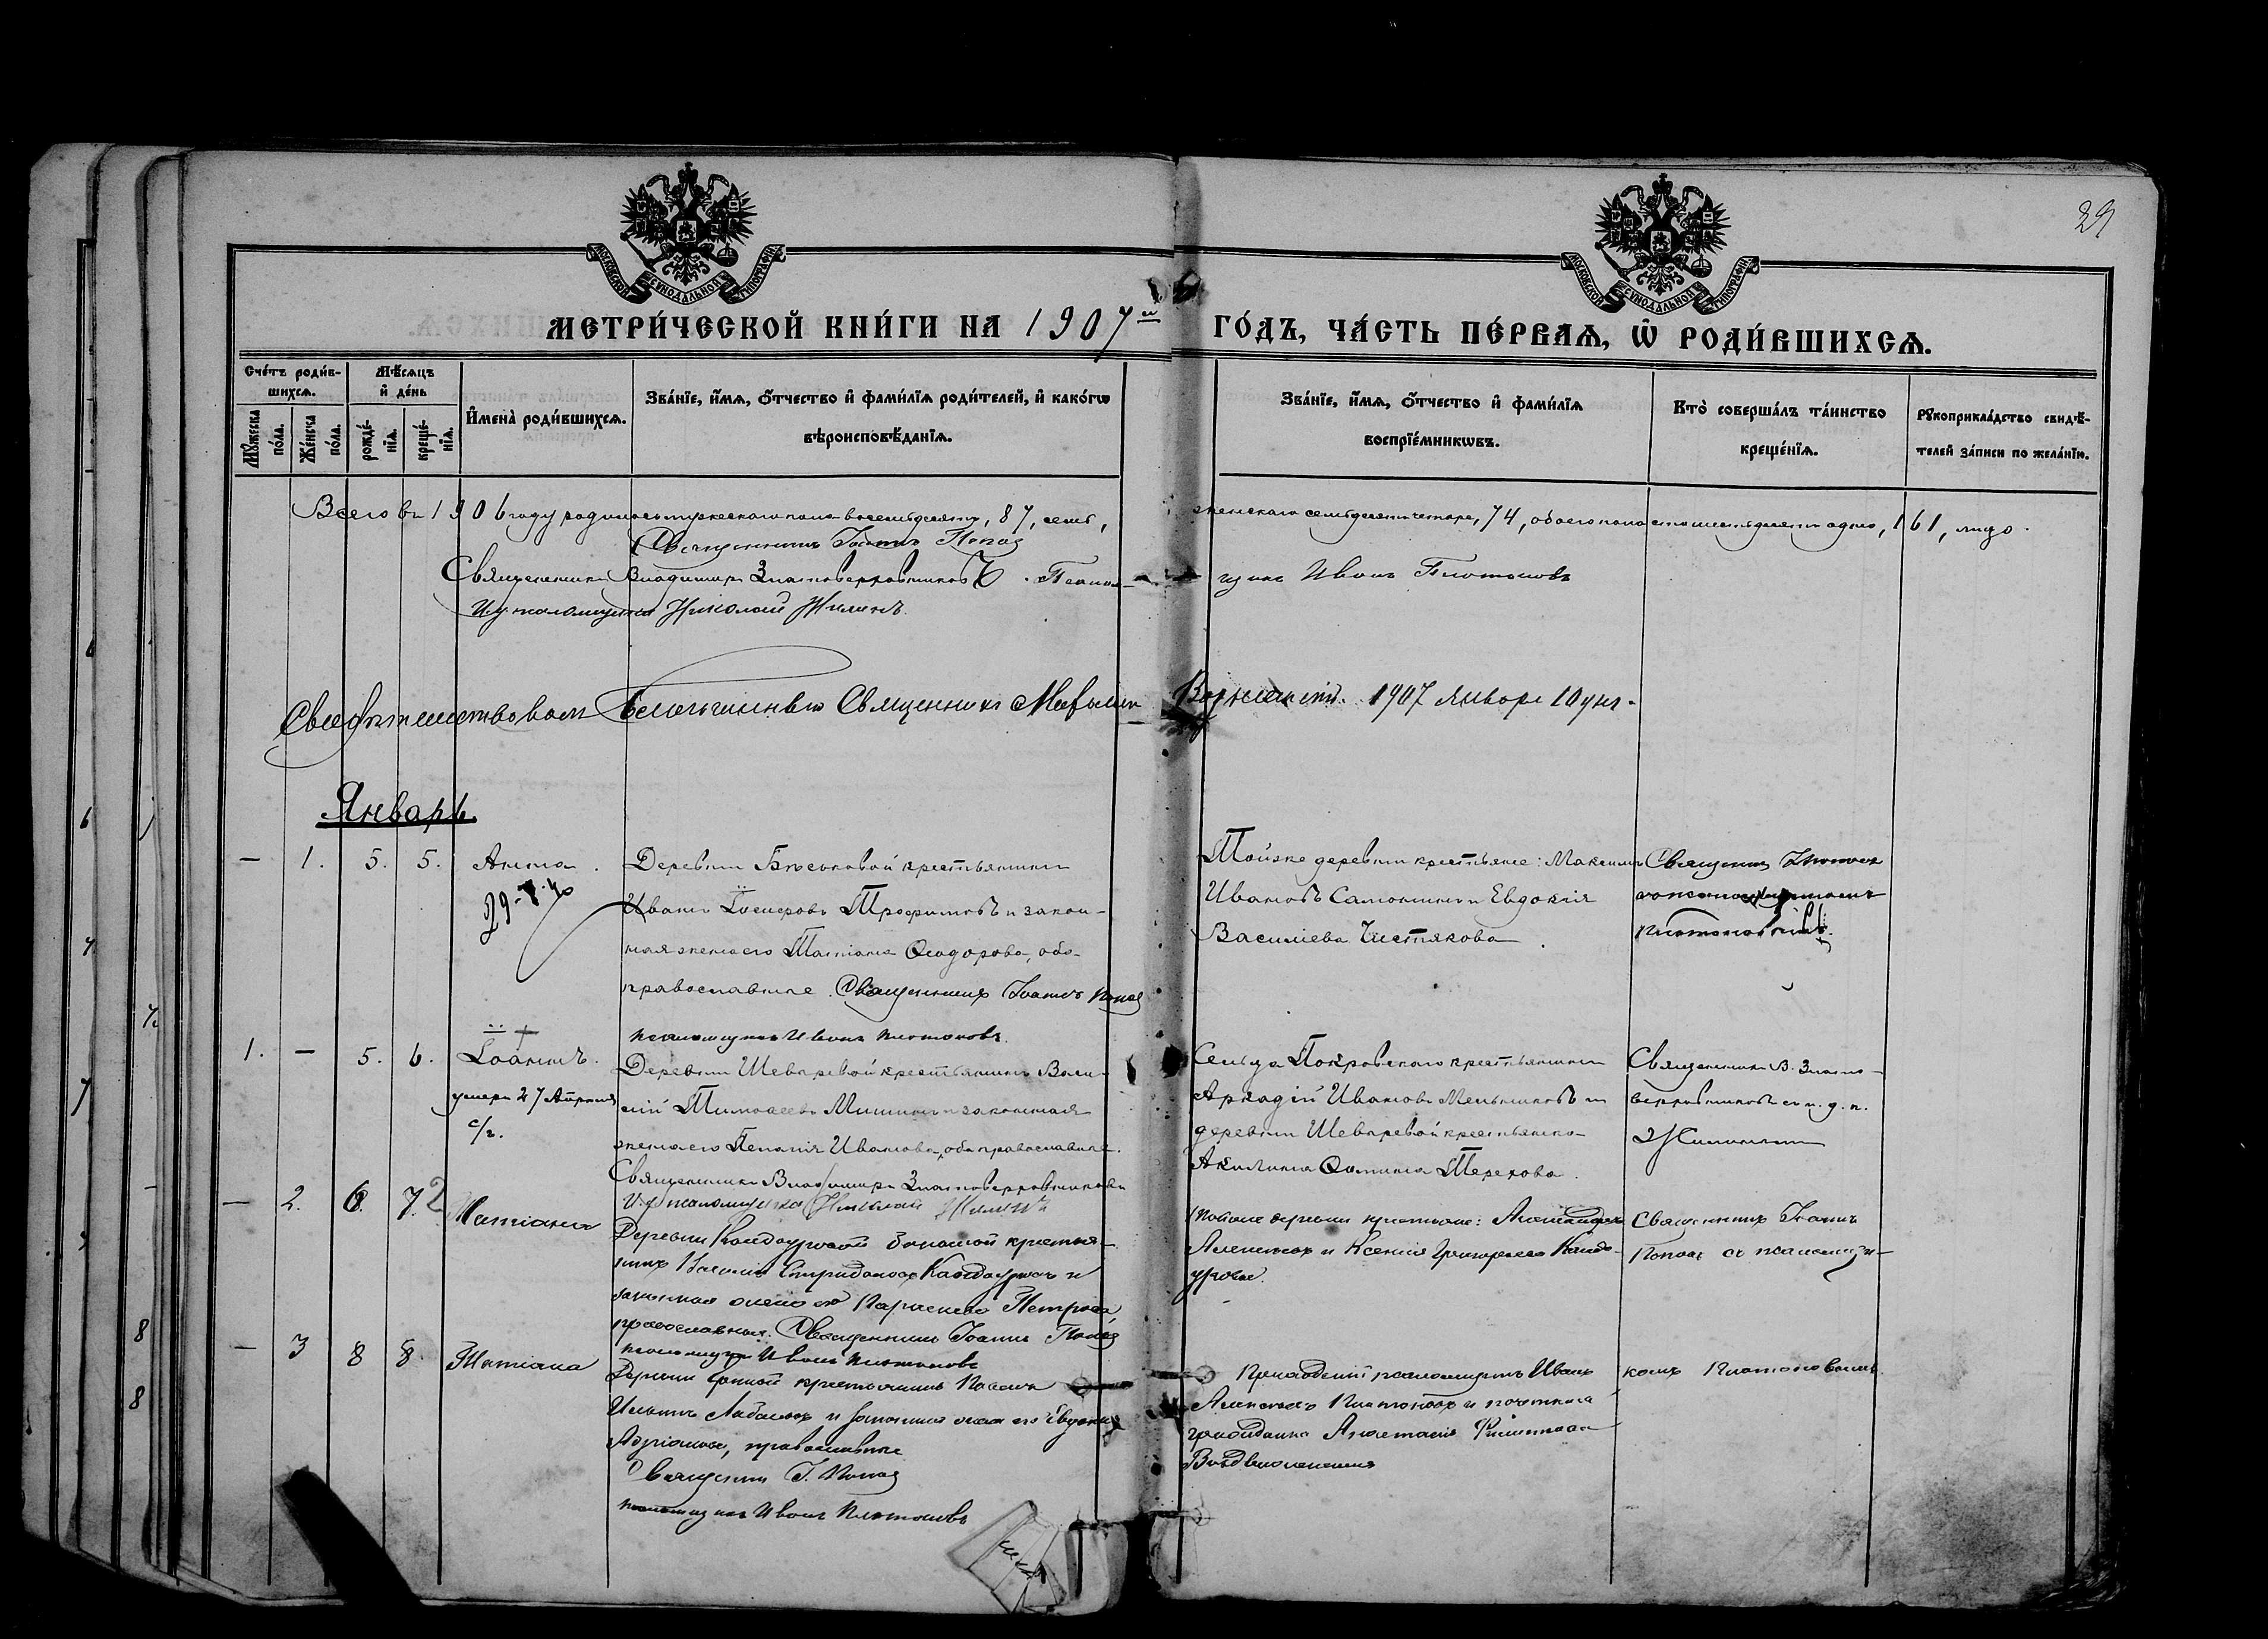 29
МОСКОВСКОЙ СѴНОДАЛЬНОЙ ТИПОГРАФІИ
МОСКОВСКОЙ СѴНОДАЛЬНОЙ ТИПОГРАФІИ
МЕТРИ́ЧЕСКОЙ КНИ́ГИ НА 1907й ГО́ДЪ, ЧА́СТЬ ПЕ́РВАѦ, Ѡ҆ РОДИ́ВШИХСѦ.
Сче́тъ роди́в-
шихсѧ.
Мѣ́сѧцъ
и҆ де́нь
Мꙋ́жеска
по́ла.
Же́нска
по́ла.
рожде́-
нїѧ.
креще́-
нїѧ.
И҆мена̀ роди́вшихсѧ.
Зва́нїе, и҆́мѧ, ѻ҆́тчество и҆ фами́лїѧ роди́телей, и҆ како́гѡ
вѣроисповѣ́данїѧ.
Зва́нїе, и҆́мѧ, ѻ҆́тчество и҆ фами́лїѧ
воспрїе́мникѡвъ.
Кто̀ соверша́лъ та́инство
креще́нїѧ.
Рꙋкоприкла́дство свидѣ́-
телей за́писи по жела́нїю.
Всего въ 1906 году родилось мужескаго пола восемьдесятъ, 87, семь, женскаго семьдесятъ четыре, 74, обоего пола сто шестьдесятъ одно, 161, лицо.
Священникъ Іоаннъ Попов
Священникъ Владимиръ Златоверховниковъ. Псаломщикъ Иванъ Платоновъ
И. д. псаломщика Николай Жилинъ.
Свидѣтельствовалъ Благочинный Священникъ 1907 Января 10 дня.
Январь.
— 1. 5. 5. Анна.
29-7-40
Деревни крестьянинъ
Иванъ Іосифовъ Трофимовъ и закон-
ная жена его Татіана Ѳеодорова, оба
православные. Священникъ Іоаннъ Попов
псаломщикъ Иванъ Платоновъ.
Тойже деревни крестьяне: Максимъ
Ивановъ Самохинъ и Евдокія
Василіева Чистякова.
Священникъ Іоаннъ
Платоновымъ.
1. — 5. 6. Іоаннъ.
умеръ 27 Апрѣля
с/г.
Деревни Шевыревой крестьянинъ Васи-
лій Тимоѳеевъ Мишинъ и законная
жена его Пелагія Иванова, оба православные.
Священникъ Владимиръ Златоверховниковъ
И. д. псаломщика Николай Жилинъ
Сельца Покровскаго крестьянинъ
Аркадій Ивановъ Мельниковъ и
деревни Шевыревой крестьянка
Акилина Ѳомина Терехова.
Священникъ В. Злато-
верховниковъ съ и. д. п.
Жилинымъ
— 2. 6. 7. Татіана
Деревни Кандауровой крестья-
нинъ Василій Спиридоновъ Кандауровъ и
законная жена его Параскева Петрова
православные. Священникъ Іоаннъ Попов
псаломщикъ Иванъ Платоновъ
тойже деревни крестьяне: Александръ
Алексѣевъ и Ксенія Григорьева Канда-
уровы.
Священникъ Іоаннъ
Поповъ съ псаломщи-
комъ Платоновымъ.
— 3 8 8. Татіана
Деревни крестьянинъ
Ильинъ и законная жена его Евдокія
православные
Священникъ І. Попов
псаломщикъ Иванъ Платоновъ
псаломщикъ Иванъ
Алексѣевъ Платоновъ и почетная
гражданка Анастасія Филиппова
Воздвиженская